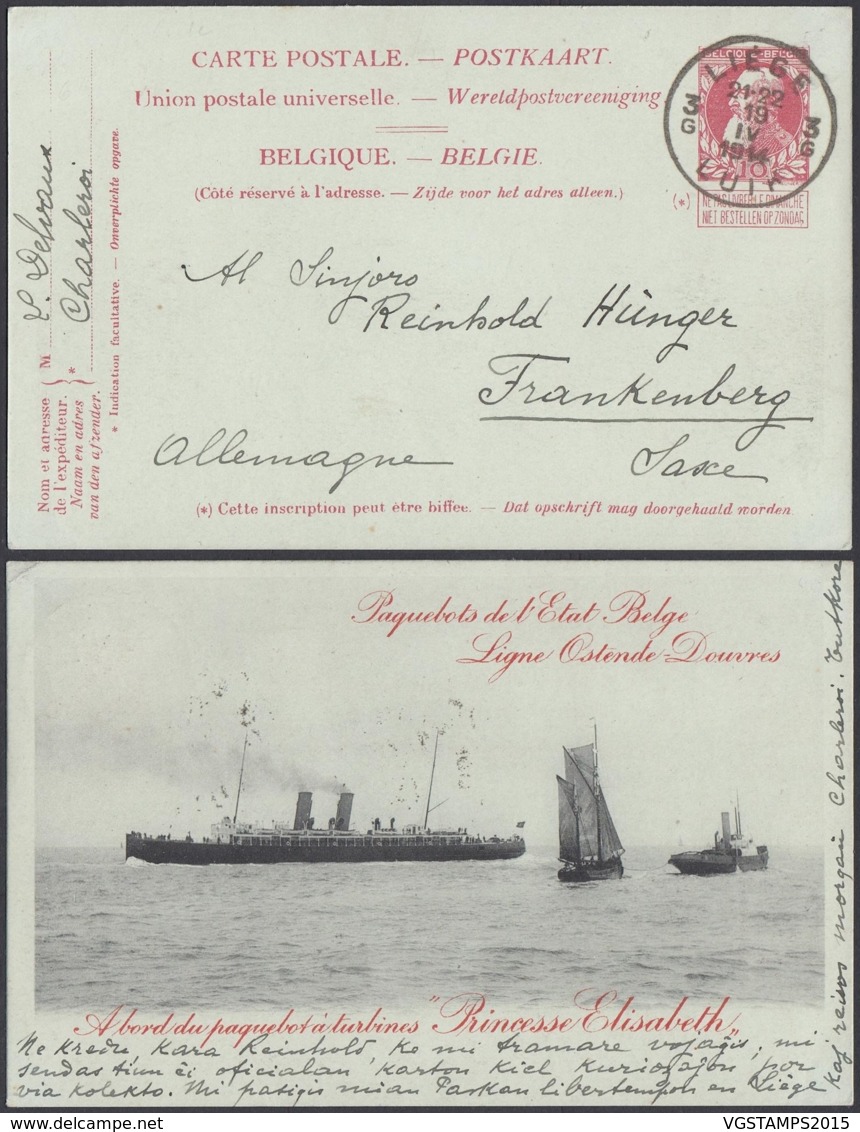 CARTE POSTALE. — POSTKAART.
Union postale universelle. — Wereldpostvereeniging
BELGIQUE. — BELGIE.
(Côté réservé à l'adresse. — Zijde voor het adres alleen.)
BELGIQUE-BELGIE
10
LIÈGE
21-22
19
IV
1914
3
G
3
G
LUIK
(*) NE PAS LIVRER LE DIMANCHE
NIET BESTELLEN OP ZONDAG
Nom et adresse
de l'expéditeur.
Naam en adres
van den afzender.
M
L. Delvaux
* Charleroi
* Indication facultative. — Onverplichte opgave.
Al Sinjoro
Reinhold Hünger
Frankenberg
Allemagne Saxe
(*) Cette inscription peut être biffée. — Dat opschrift mag doorgehaald worden.
Paquebots de l'Etat Belge
Ligne Ostende-Douvres
A bord du paquebot à turbines "Princesse Elisabeth"
Ne kredu, kara Reinhold, ke mi tramare vojaĝis, mi
sendas tiun ĉi oficialan karton kiel kuriozaĵon por
via kolekto. Mi pasigis mian Paskan libertempon en Liège
kaj reiros morgaŭ Charleroi. Tutkore
VGSTAMPS2015